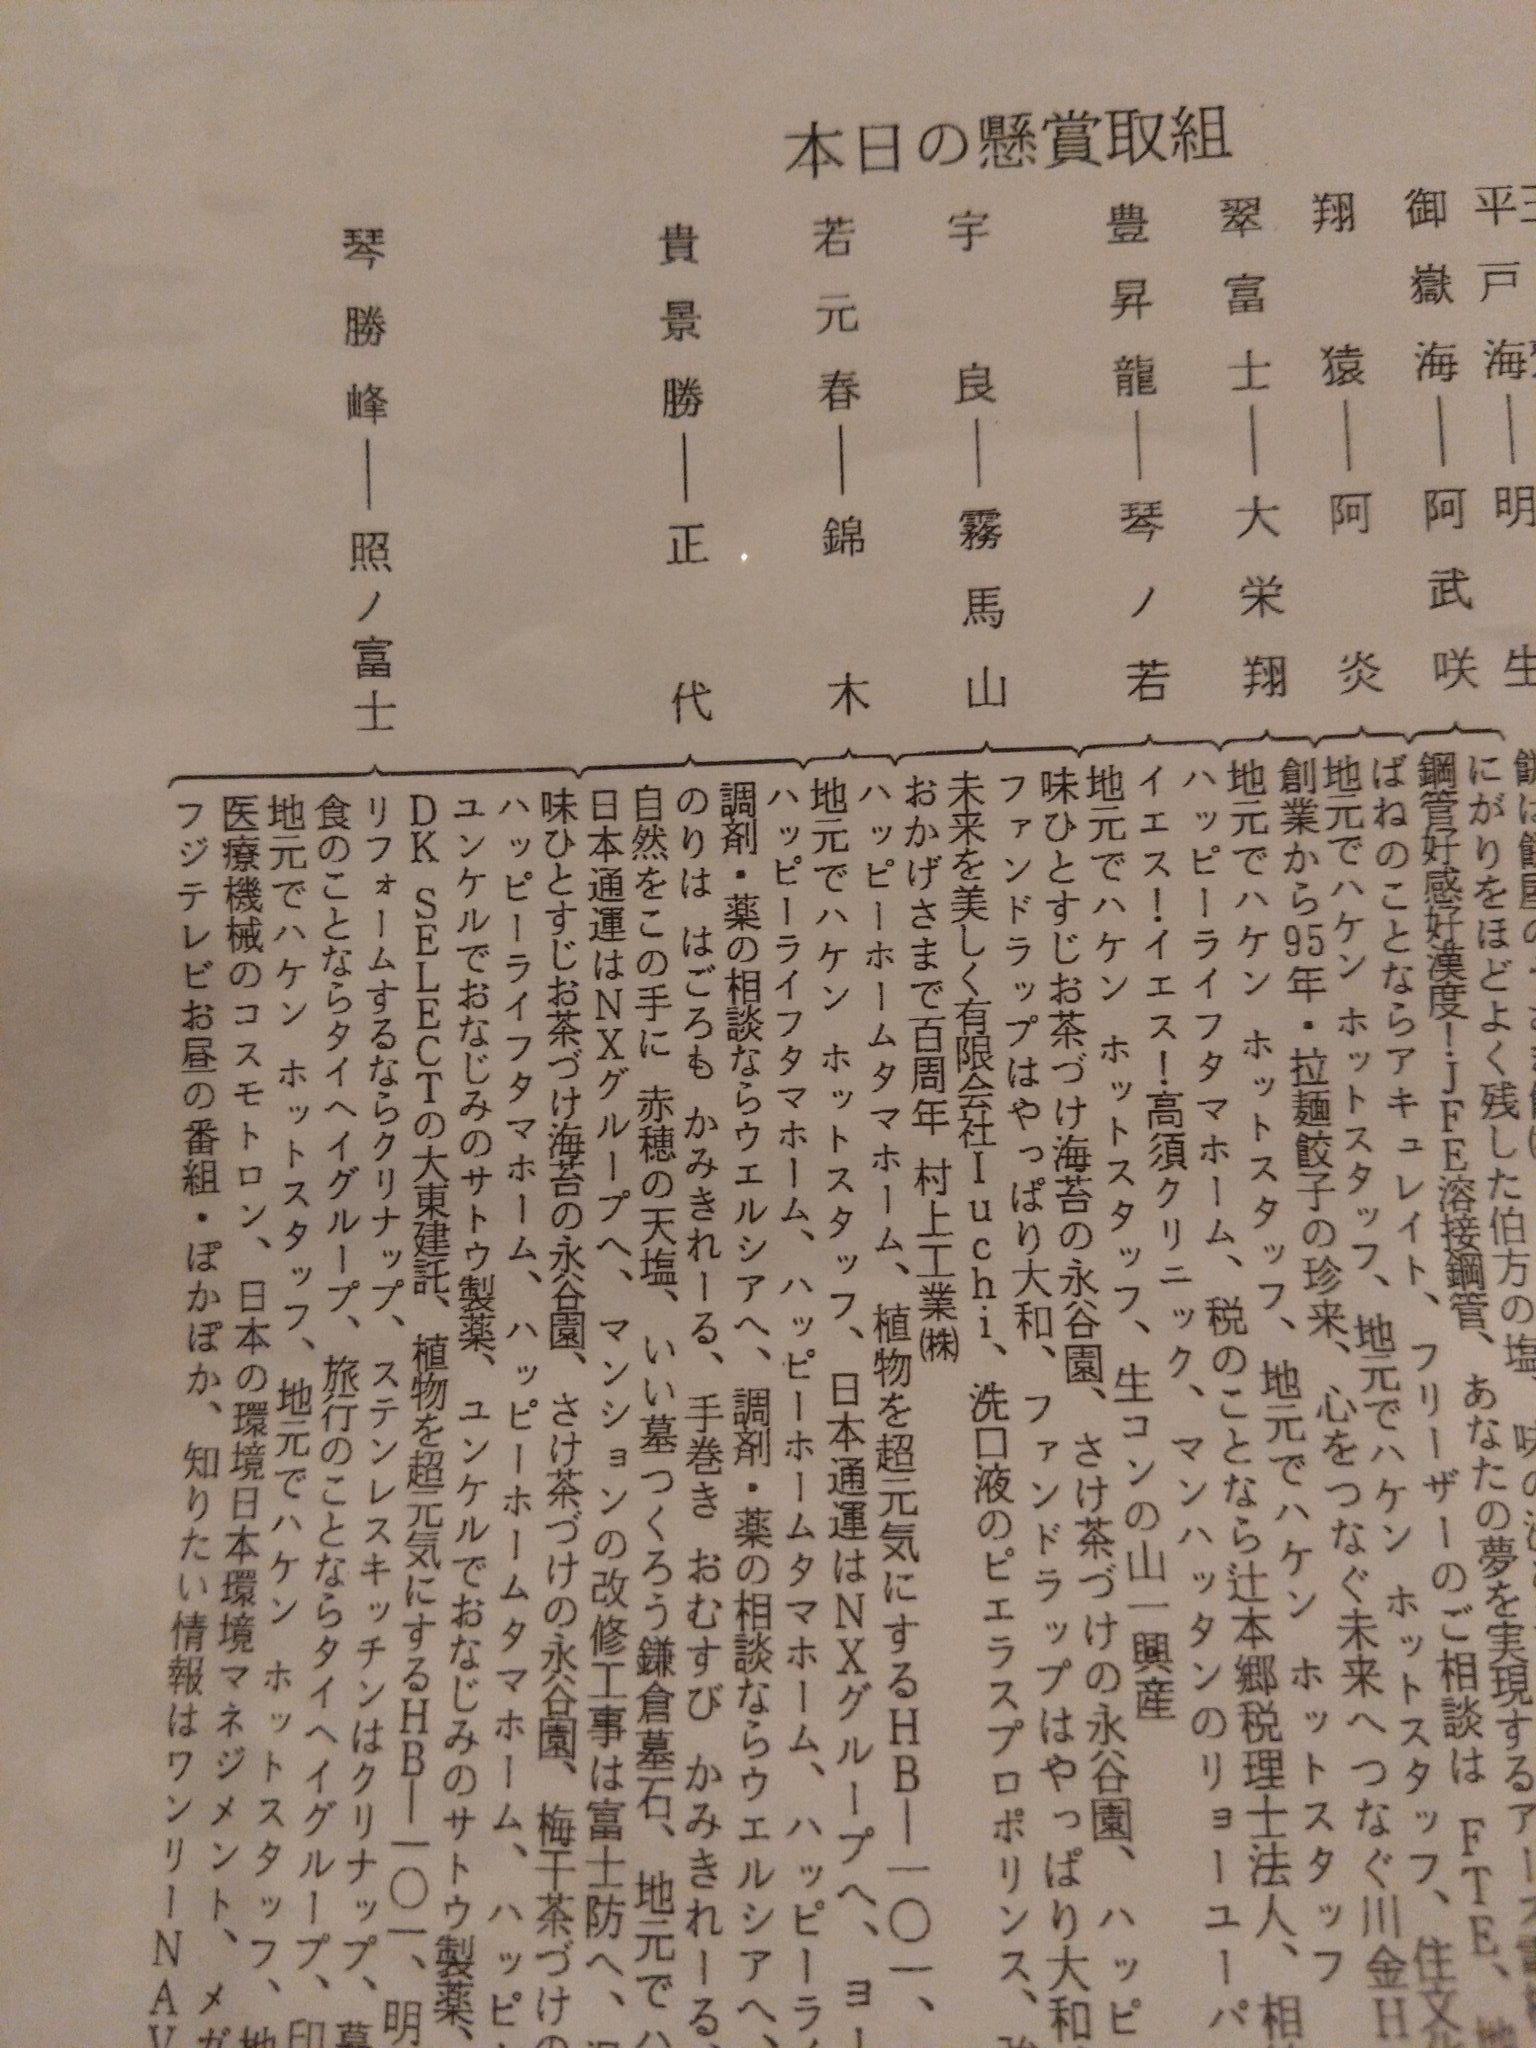 本日の懸賞取組
平戸海―明生
御嶽海―阿武咲
翔猿―阿炎
翠富士―大栄翔
豊昇龍―琴ノ若
宇良―霧馬山
若元春―錦木
貴景勝―正代
琴勝峰―照ノ富士
にがりをほどよく残した伯方の塩、
鋼管好感好漢度！JFE溶接鋼管、あなたの夢を実現するアース
ばねのことならアキュレイト、フリーザーのご相談は FTE、
地元でハケン ホットスタッフ、地元でハケン ホットスタッフ、住文化
創業から95年・拉麺餃子の珍来、心をつなぐ未来へつなぐ川金H
地元でハケン ホットスタッフ、地元でハケン ホットスタッフ
ハッピーライフタマホーム、税のことなら辻本郷税理士法人、相
イエス！イエス！高須クリニック、マンハッタンのリョーユーパ
地元でハケン ホットスタッフ、生コンの山一興産
味ひとすじお茶づけ海苔の永谷園、さけ茶づけの永谷園、ハッピ
ファンドラップはやっぱり大和、ファンドラップはやっぱり大和
未来を美しく有限会社Iuchi、洗口液のピェラスプロポリンス、
おかげさまで百周年 村上工業㈱
ハッピーホームタマホーム、植物を超元気にするHB―一〇一、
地元でハケン ホットスタッフ、日本通運はNXグループへ、ヨー
ハッピーライフタマホーム、ハッピーホームタマホーム、ハッピーライ
調剤・薬の相談ならウエルシアへ、調剤・薬の相談ならウエルシアへ、
のりは はごろも かみきれーる、手巻き おむすび かみきれーる、
自然をこの手に 赤穂の天塩、いい墓つくろう鎌倉墓石、地元でハ
日本通運はNXグループへ、マンションの改修工事は富士防へ、
味ひとすじお茶づけ海苔の永谷園、さけ茶づけの永谷園、梅干茶づけの
ハッピーライフタマホーム、ハッピーホームタマホーム、ハッピ
ユンケルでおなじみのサトウ製薬、ユンケルでおなじみのサトウ製薬、
DK SELECTの大東建託、植物を超元気にするHB―一〇一、明
リフォームするならクリナップ、ステンレスキッチンはクリナップ、墓
食のことならタイヘイグループ、旅行のことならタイヘイグループ、印
地元でハケン ホットスタッフ、地元でハケン ホットスタッフ、地
医療機械のコスモトロン、日本の環境日本環境マネジメント、メガ
フジテレビお昼の番組・ぽかぽか、知りたい情報はワンリーNAV